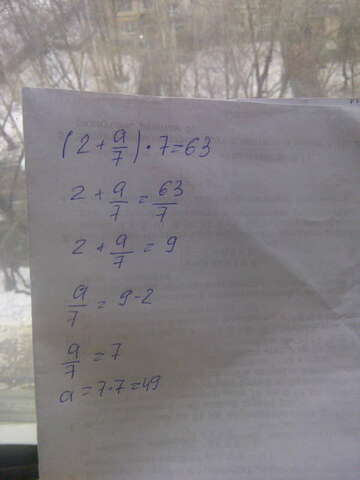 (2 + a/7) · 7 = 63
2 + a/7 = 63/7
2 + a/7 = 9
a/7 = 9 - 2
a/7 = 7
a = 7 · 7 = 49